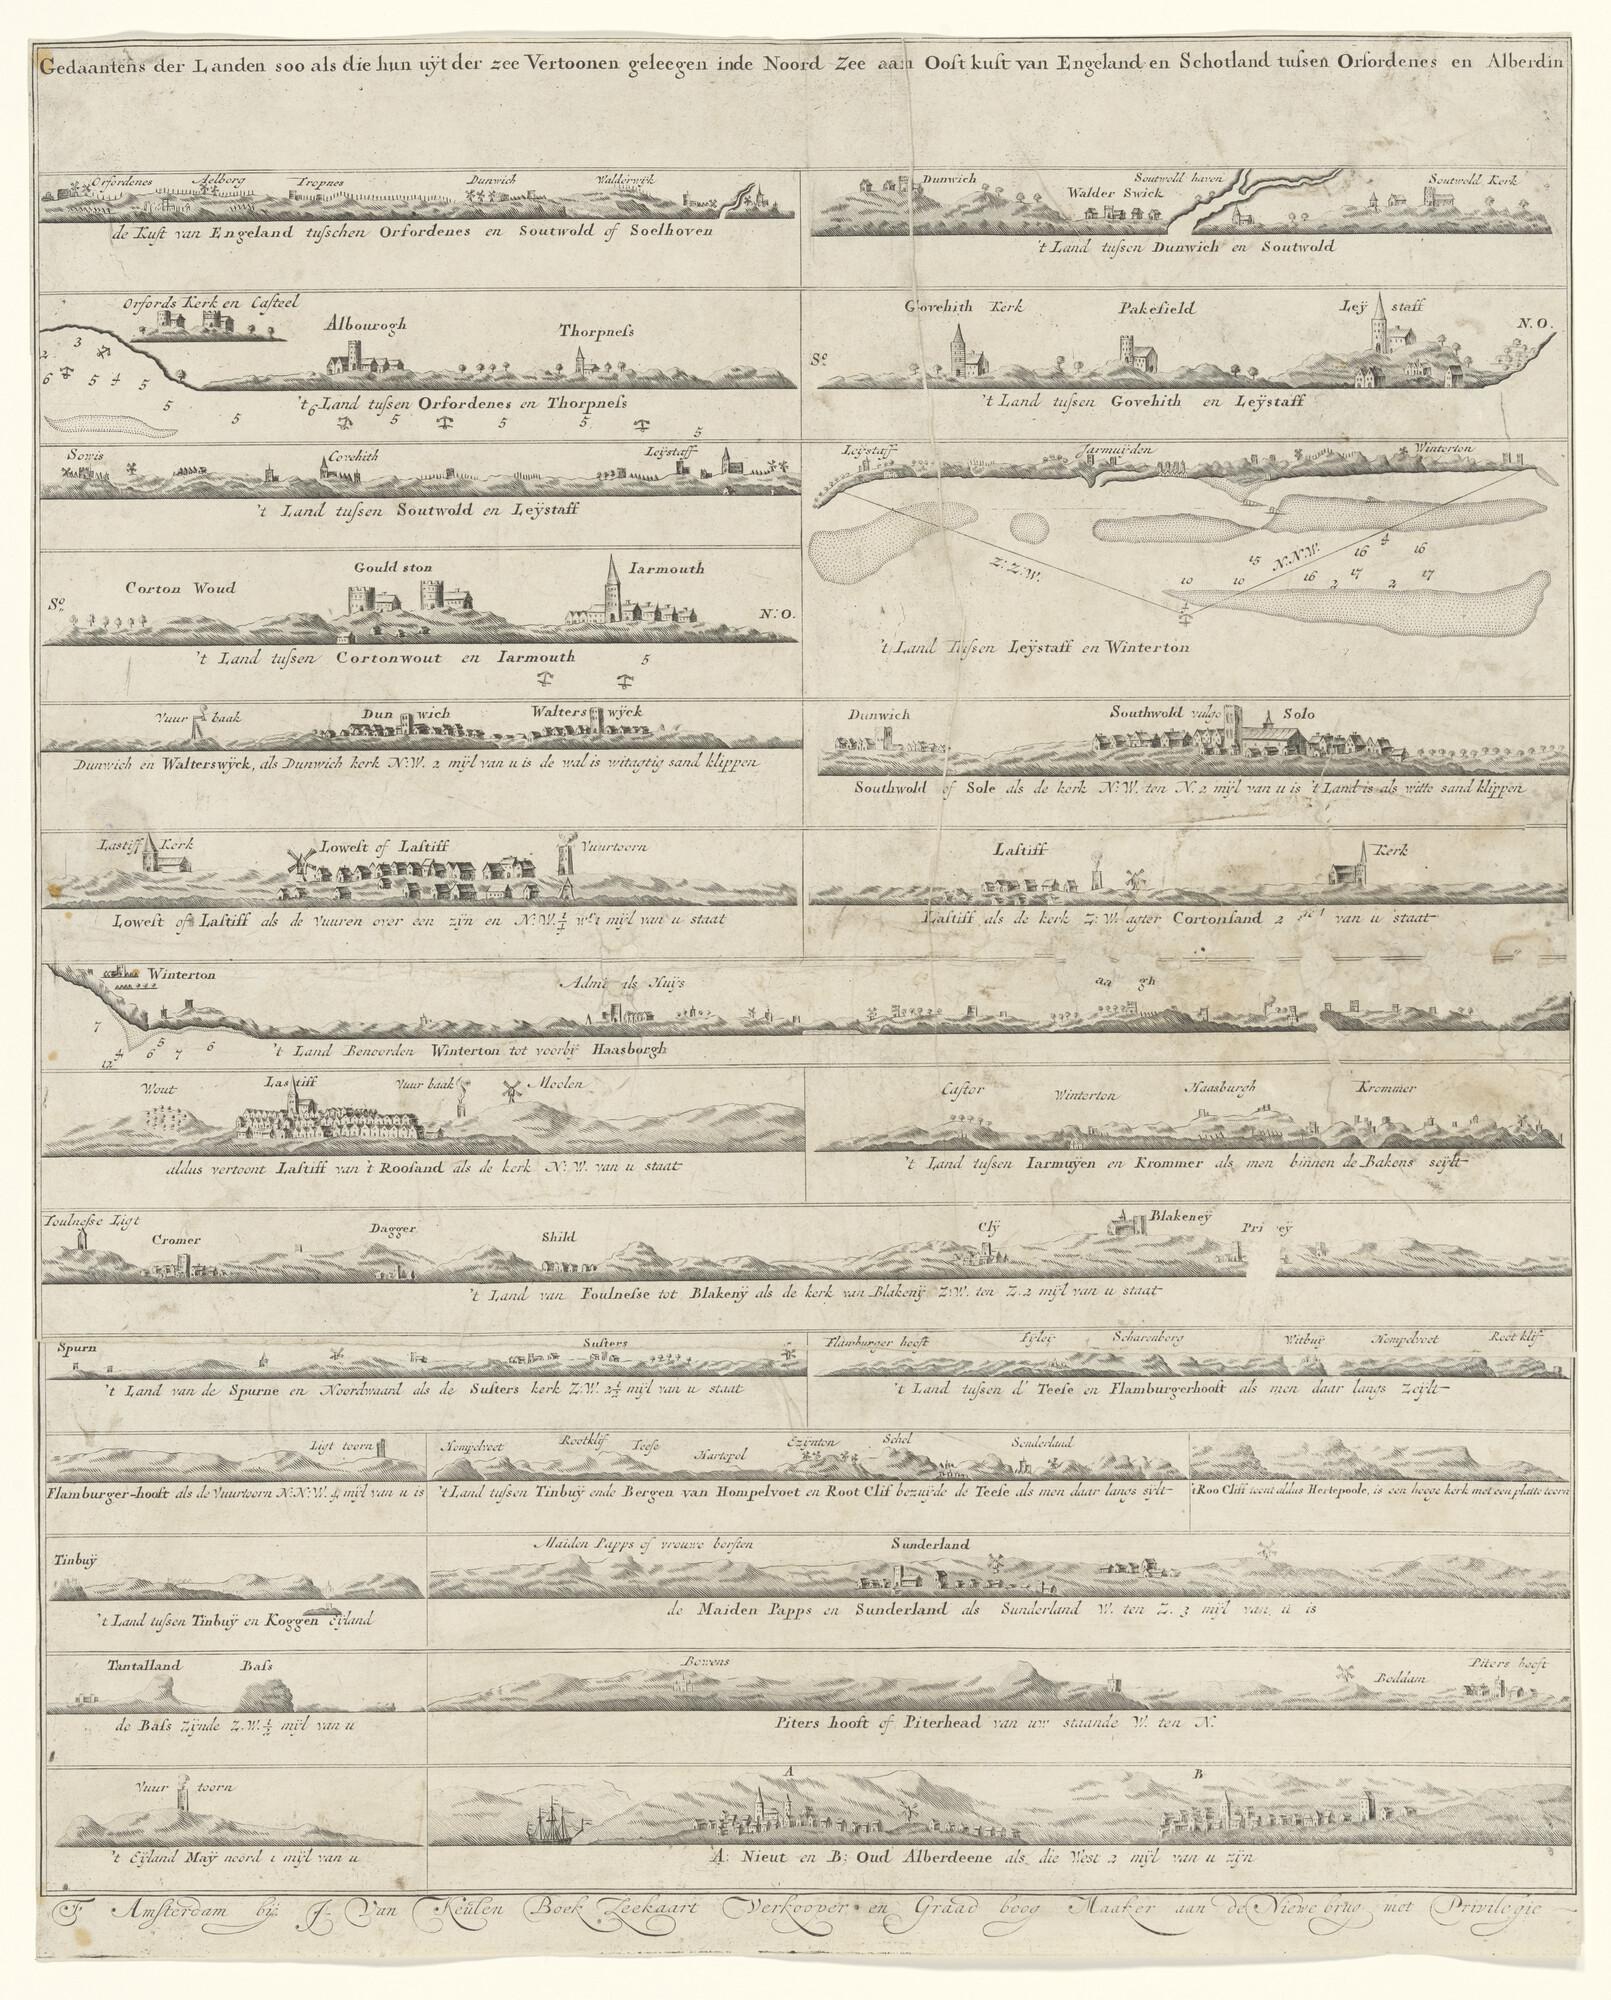 Gedaantens der Landen soo als die hun uÿt der zee Vertoonen geleegen inde Noord Zee aan Oost kust van Engeland en Schotland tussen Orfordenes en Alberdin
Orfordenes Aelborg Tropnes Dunwich Walderwyk
de Kust van Engeland tusschen Orfordenes en Soutwold of Soelhoven
Dunwich Walder Swick Soutwold haven Soutwold Kerk
't Land tussen Dunwich en Soutwold
Orfords Kerk en Casteel Albourogh Thorpness
2 3 6 5 4 5 5 5
't Land tussen Orfordenes en Thorpness
6 5 5 5 5
Govehith Kerk Pakefield Leÿ staff
So N.O.
't Land tussen Govehith en Leÿstaff
Sowis Covehith Leÿstaff
't Land tussen Soutwold en Leÿstaff
Leÿstaff Jarmuÿden Winterton
Z:Z.W. N.N.W. 15 16 4 16
10 10 16 2 17 2 17
't Land Tussen Leÿstaff en Winterton
Corton Woud Gould ston Iarmouth
So N.O.
't Land tussen Cortonwout en Iarmouth 5
Vuur baak Dun wich Walters wÿck
Dunwich en Walterswÿck, als Dunwich kerk N:W. 2 mÿl van u is de wal is witagtig sand klippen
Dunwich Southwold vulgo Solo
Southwold of Sole als de kerk N:W. ten N. 2 mÿl van u is 't Land is als witte sand klippen
Lastiff Kerk Lowest of Lastiff Vuurtoorn
Lowest of Lastiff als de Vuuren over een zÿn en N:W. mÿl van u staat
Lastiff Kerk
Lastiff als de kerk Z:W. agter Cortonsand 2 van u staat
Winterton Huÿs
7 4 12 6 5 7 6
't Land Benoorden Winterton tot voorbÿ Haasborgh
Wout Las tiff Vuur baak Moolen
aldus vertoont Lastiff van 't Roosand als de kerk N:W. van u staat
Castor Winterton Haasburgh Krommer
't Land tussen Iarmuÿen en Krommer als men binnen de Bakens seÿlt
Foulnesse Ligt Cromer Dagger Shild Clÿ Blakeneÿ
't Land van Foulnesse tot Blakenÿ als de kerk van Blakenÿ Z:W. ten Z. 2 mÿl van u staat
Spurn Susters
't Land van de Spurne en Noordwaard als de Susters kerk Z:W. 2½ mÿl van u staat
Flamburger hooft Fÿleÿ Scharenborg Witbuÿ Hompelvoet Root klif
't Land tussen d' Teese en Flamburgerhooft als men daar langs Zeÿlt
Ligt toorn
Flamburger-hooft als de Vuurtoorn N:N:W. mÿl van u is
Hompelvoet Rootklif Teese Hartepol Ezÿnton Schel Sonderland
't Land tussen Tinbuÿ ende Bergen van Hompelvoet en Root Clif bezuÿde de Teese als men daar langs sÿlt
't Roo Cliff toont aldus Hertepoole, is een hooge kerk met een platte toorn
Tinbuÿ
't Land tussen Tinbuÿ en Koggen Eÿland
Maiden Papps of vrouwe borsten Sunderland
de Maiden Papps en Sunderland als Sunderland W. ten Z. 3 mÿl van u is
Tantalland Bass
de Bass zÿnde Z.W. ½ mÿl van u
Bowens Boddam Piters hooft
Piters hooft of Piterhead van uw staande W. ten N.
Vuur toorn
't Eÿland Maÿ noord 1 mÿl van u
A B
A: Nieut en B: Oud Alberdeene als die West 2 mÿl van u zÿn
T Amsterdam bÿ J. Van Keulen Boek Zeekaart Verkooper en Graad boog Maaker aan de Niewe brug met Privilegie